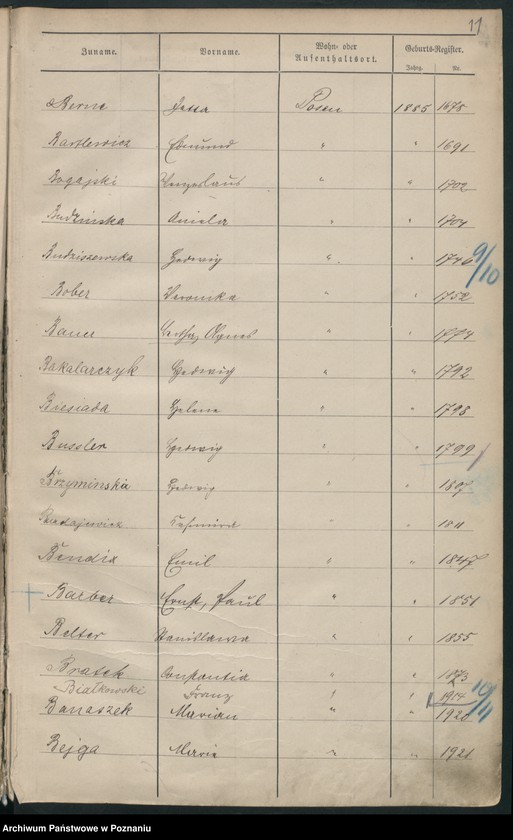 11
Zuname. Vorname. Wohn- oder Aufenthaltsort. Geburts-Register.
Jahrg. Nr.
Berne Posen 1885 1678
Bartlewicz Edmund " " 1691
Bogajski " " 1702
Budzinska Aniela " " 1704
Budziszewska Hedwig " " 1746 9/10
Bober Veronika " " 1752
Bauer Bertha, Agnes " " 1774
Bakalarczyk Hedwig " " 1792
Biesiada Helene " " 1793
Bussler Hedwig " " 1799
Brzyminska Hedwig " " 1807
Kasimira " " 1811
Bendix Emil " " 1847
Barber Ernst, Paul " " 1851
Belter Stanislawa " " 1855
Bratek Constantia " " 1873
Bialkowski Franz " " 1914 10/11
Banaszek Marian " " 1920
Bejga Marie " " 1921
Archiwum Państwowe w Poznaniu